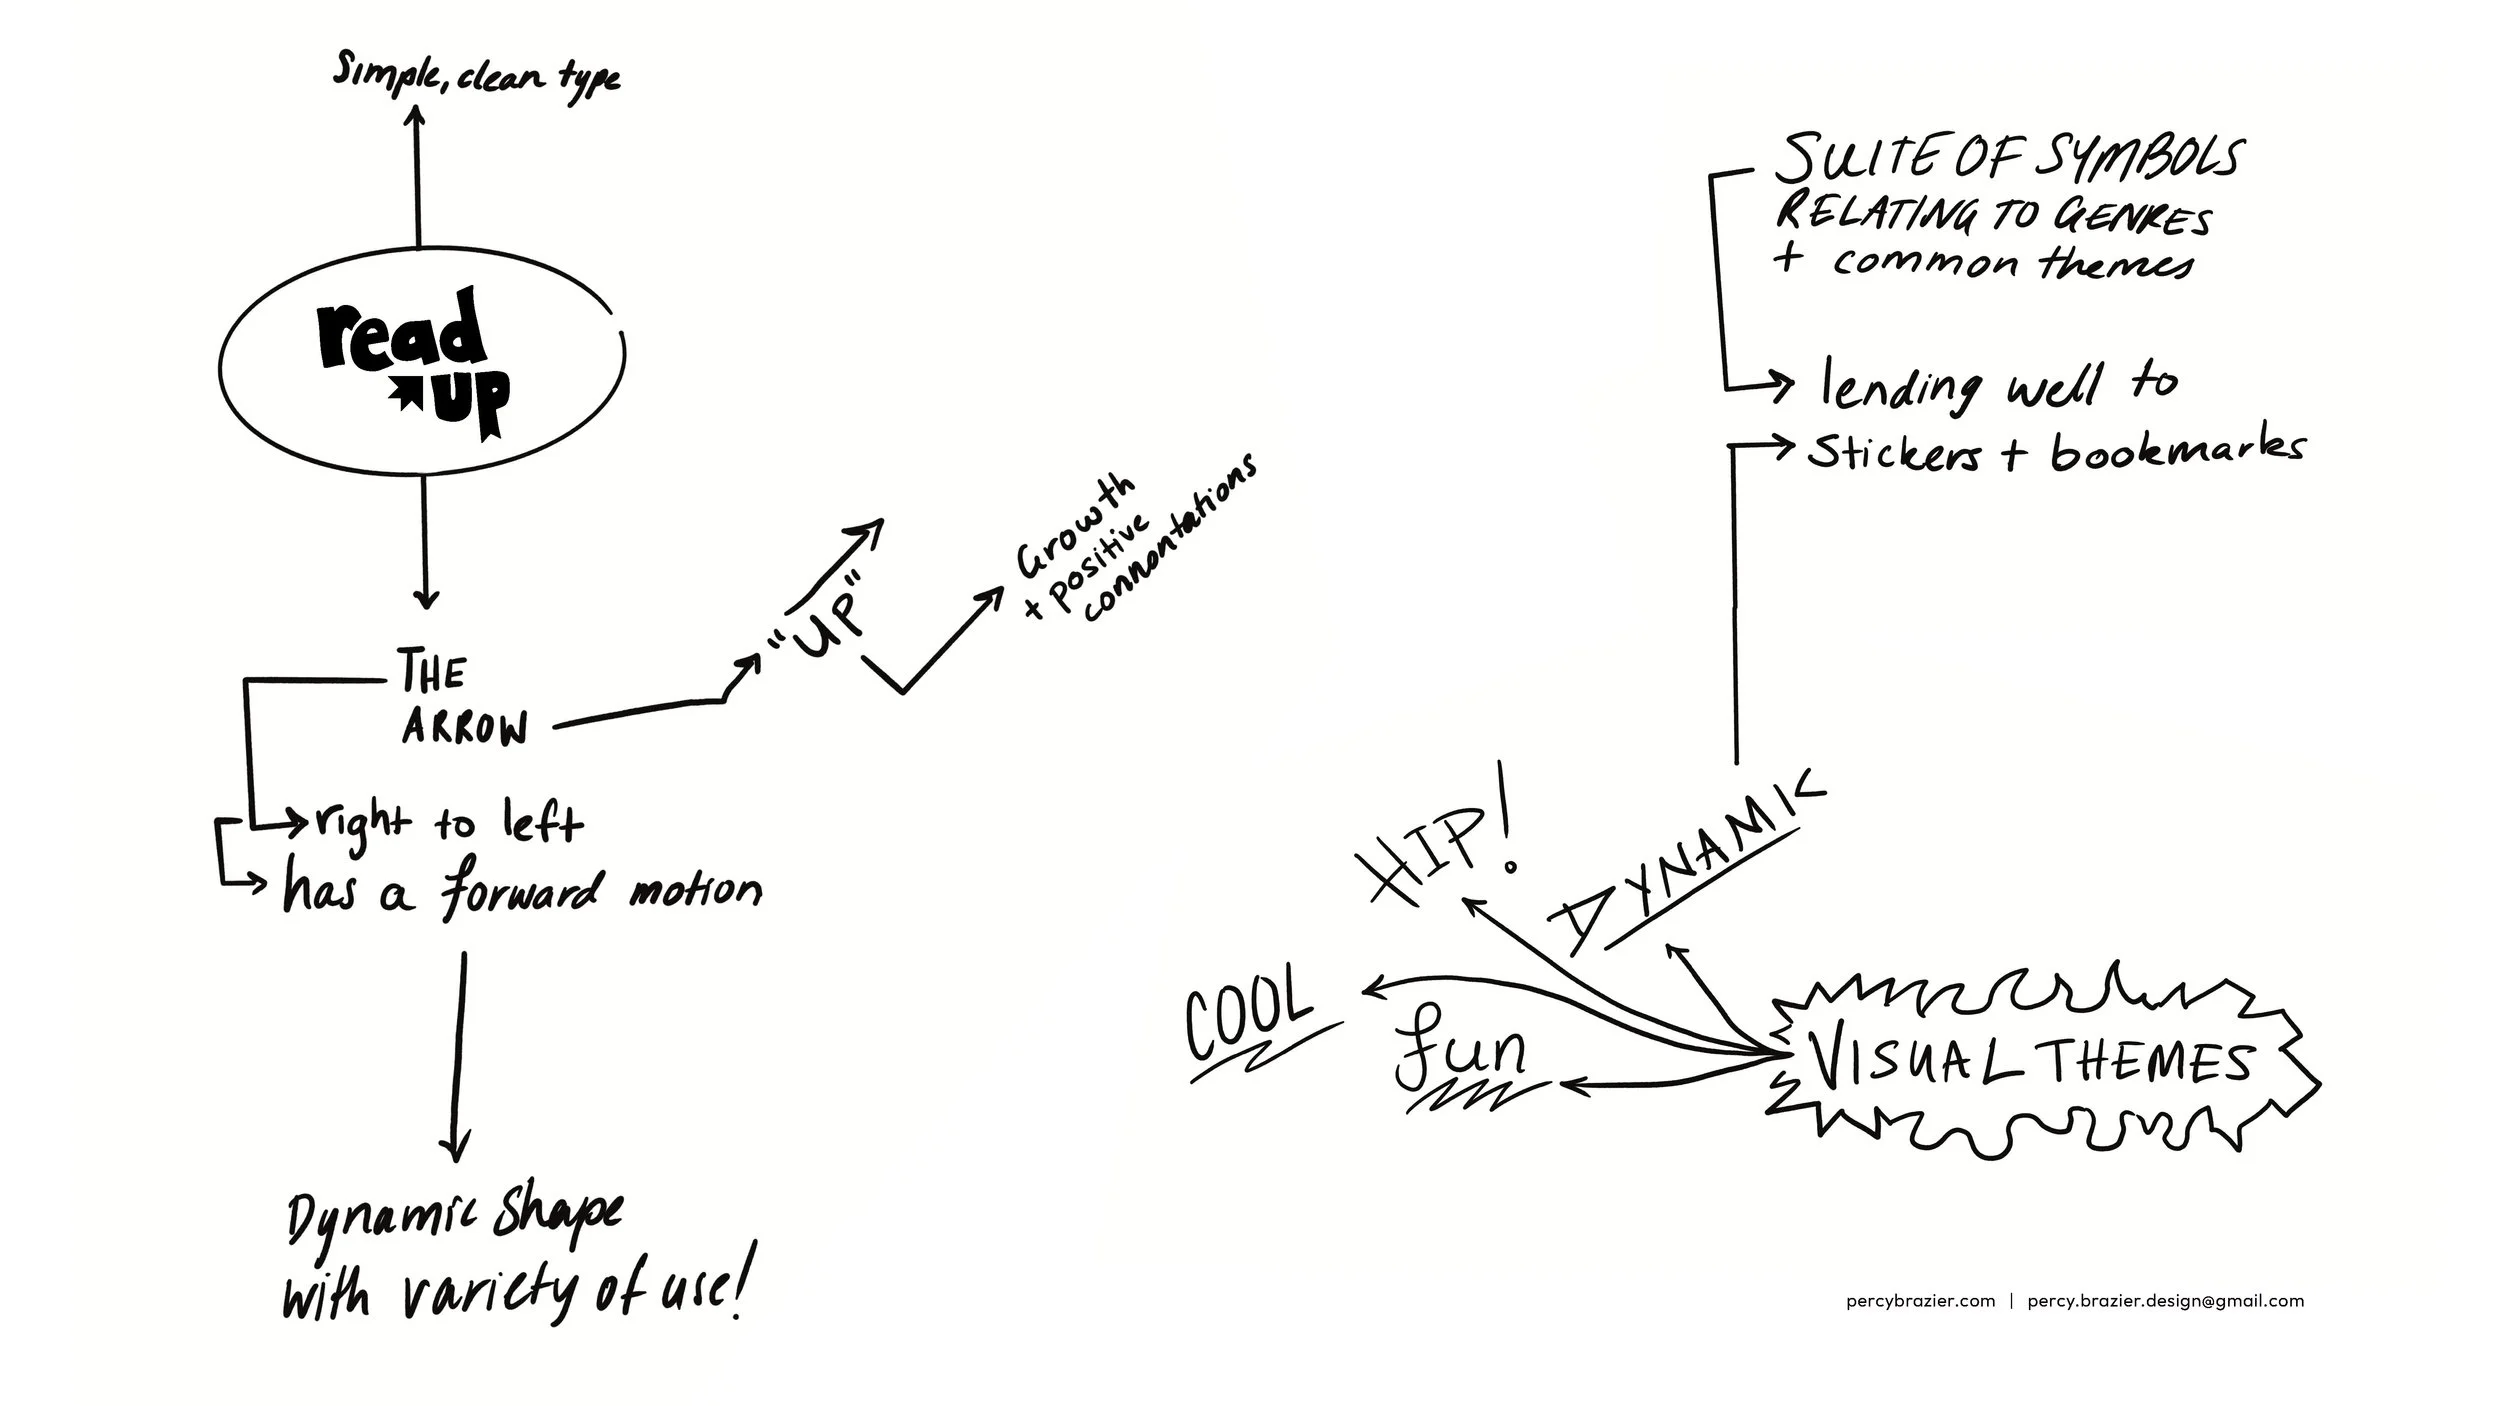 Simple, clean type
read
UP
THE
ARROW
"UP"
Growth
+ positive
connontations
right to left
has a forward motion
Dynamic Shape
with variety of use!
SUITE OF SYMBOLS
RELATING TO GENRES
+ common themes
lending well to
Stickers + bookmarks
HIP!
DYNAMIC
COOL
fun
VISUAL THEMES
percybrazier.com | percy.brazier.design@gmail.com